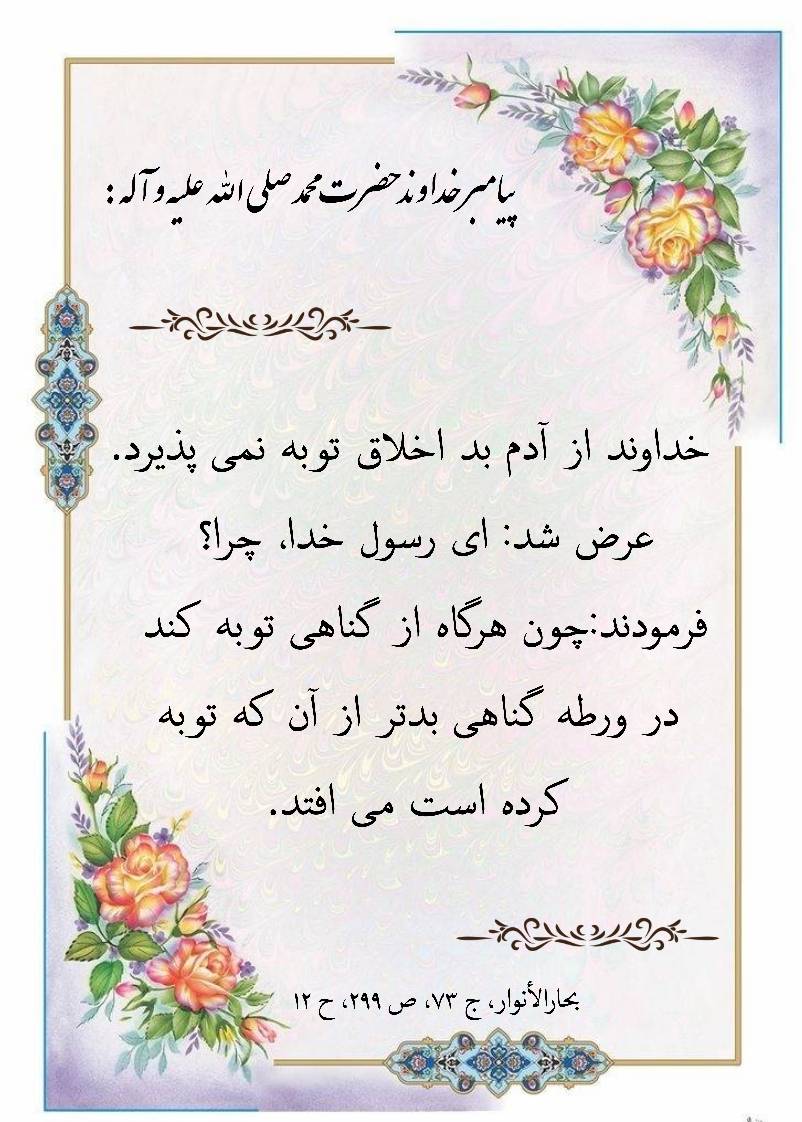 پیامبر خداوند حضرت محمد صلی الله علیه و آله :
خداوند از آدم بد اخلاق توبه نمی پذیرد.
عرض شد: ای رسول خدا، چرا؟
فرمودند:چون هرگاه از گناهی توبه کند
در ورطه گناهی بدتر از آن که توبه
کرده است می افتد.
بحارالأنوار، ج ۷۳، ص ۲۹۹، ح ۱۲